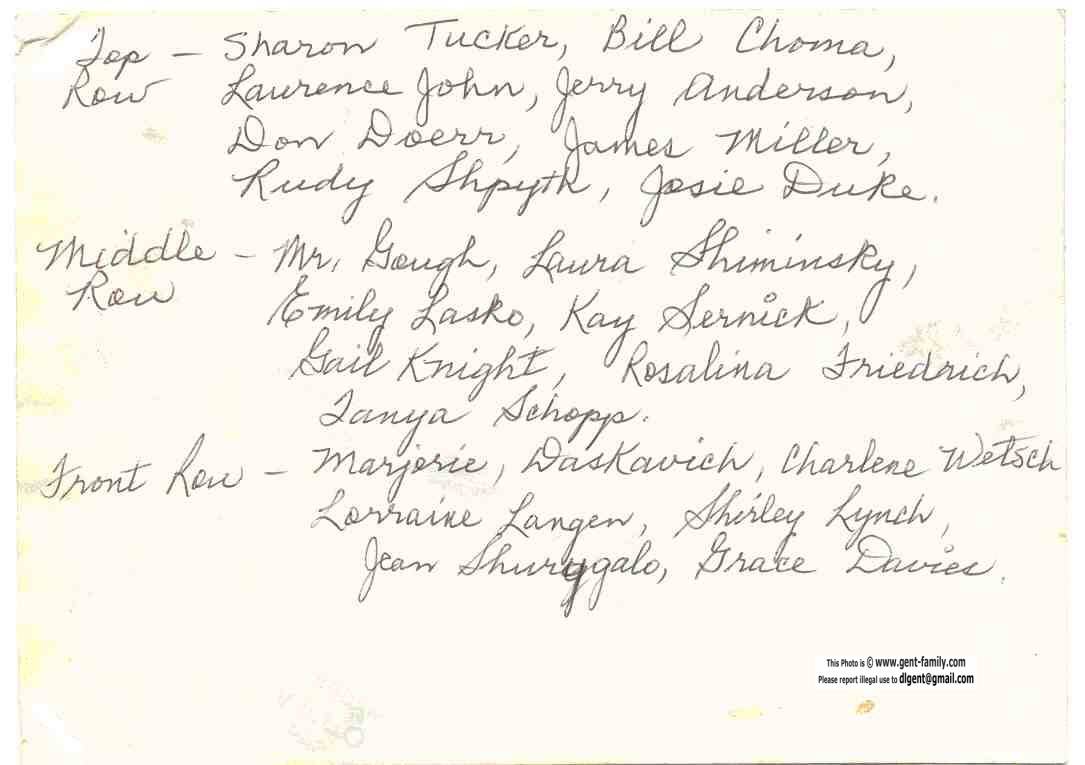 Top - Sharon Tucker, Bill Choma,
Row Laurence John, Jerry Anderson,
Don Doerr, James Miller,
Rudy Shpyth, Josie Duke.
Middle - Mr. Gough, Laura Shiminsky,
Row Emily Lasko, Kay Sernick,
Gail Knight, Rosalina Friedrich,
Tanya Schopp.
Front Row - Marjorie, Daskavich, Charlene Wetsch
Lorraine Langen, Shirley Lynch,
Jean Shurygalo, Grace Davies.
This Photo is © www.gent-family.com
Please report illegal use to dlgent@gmail.com